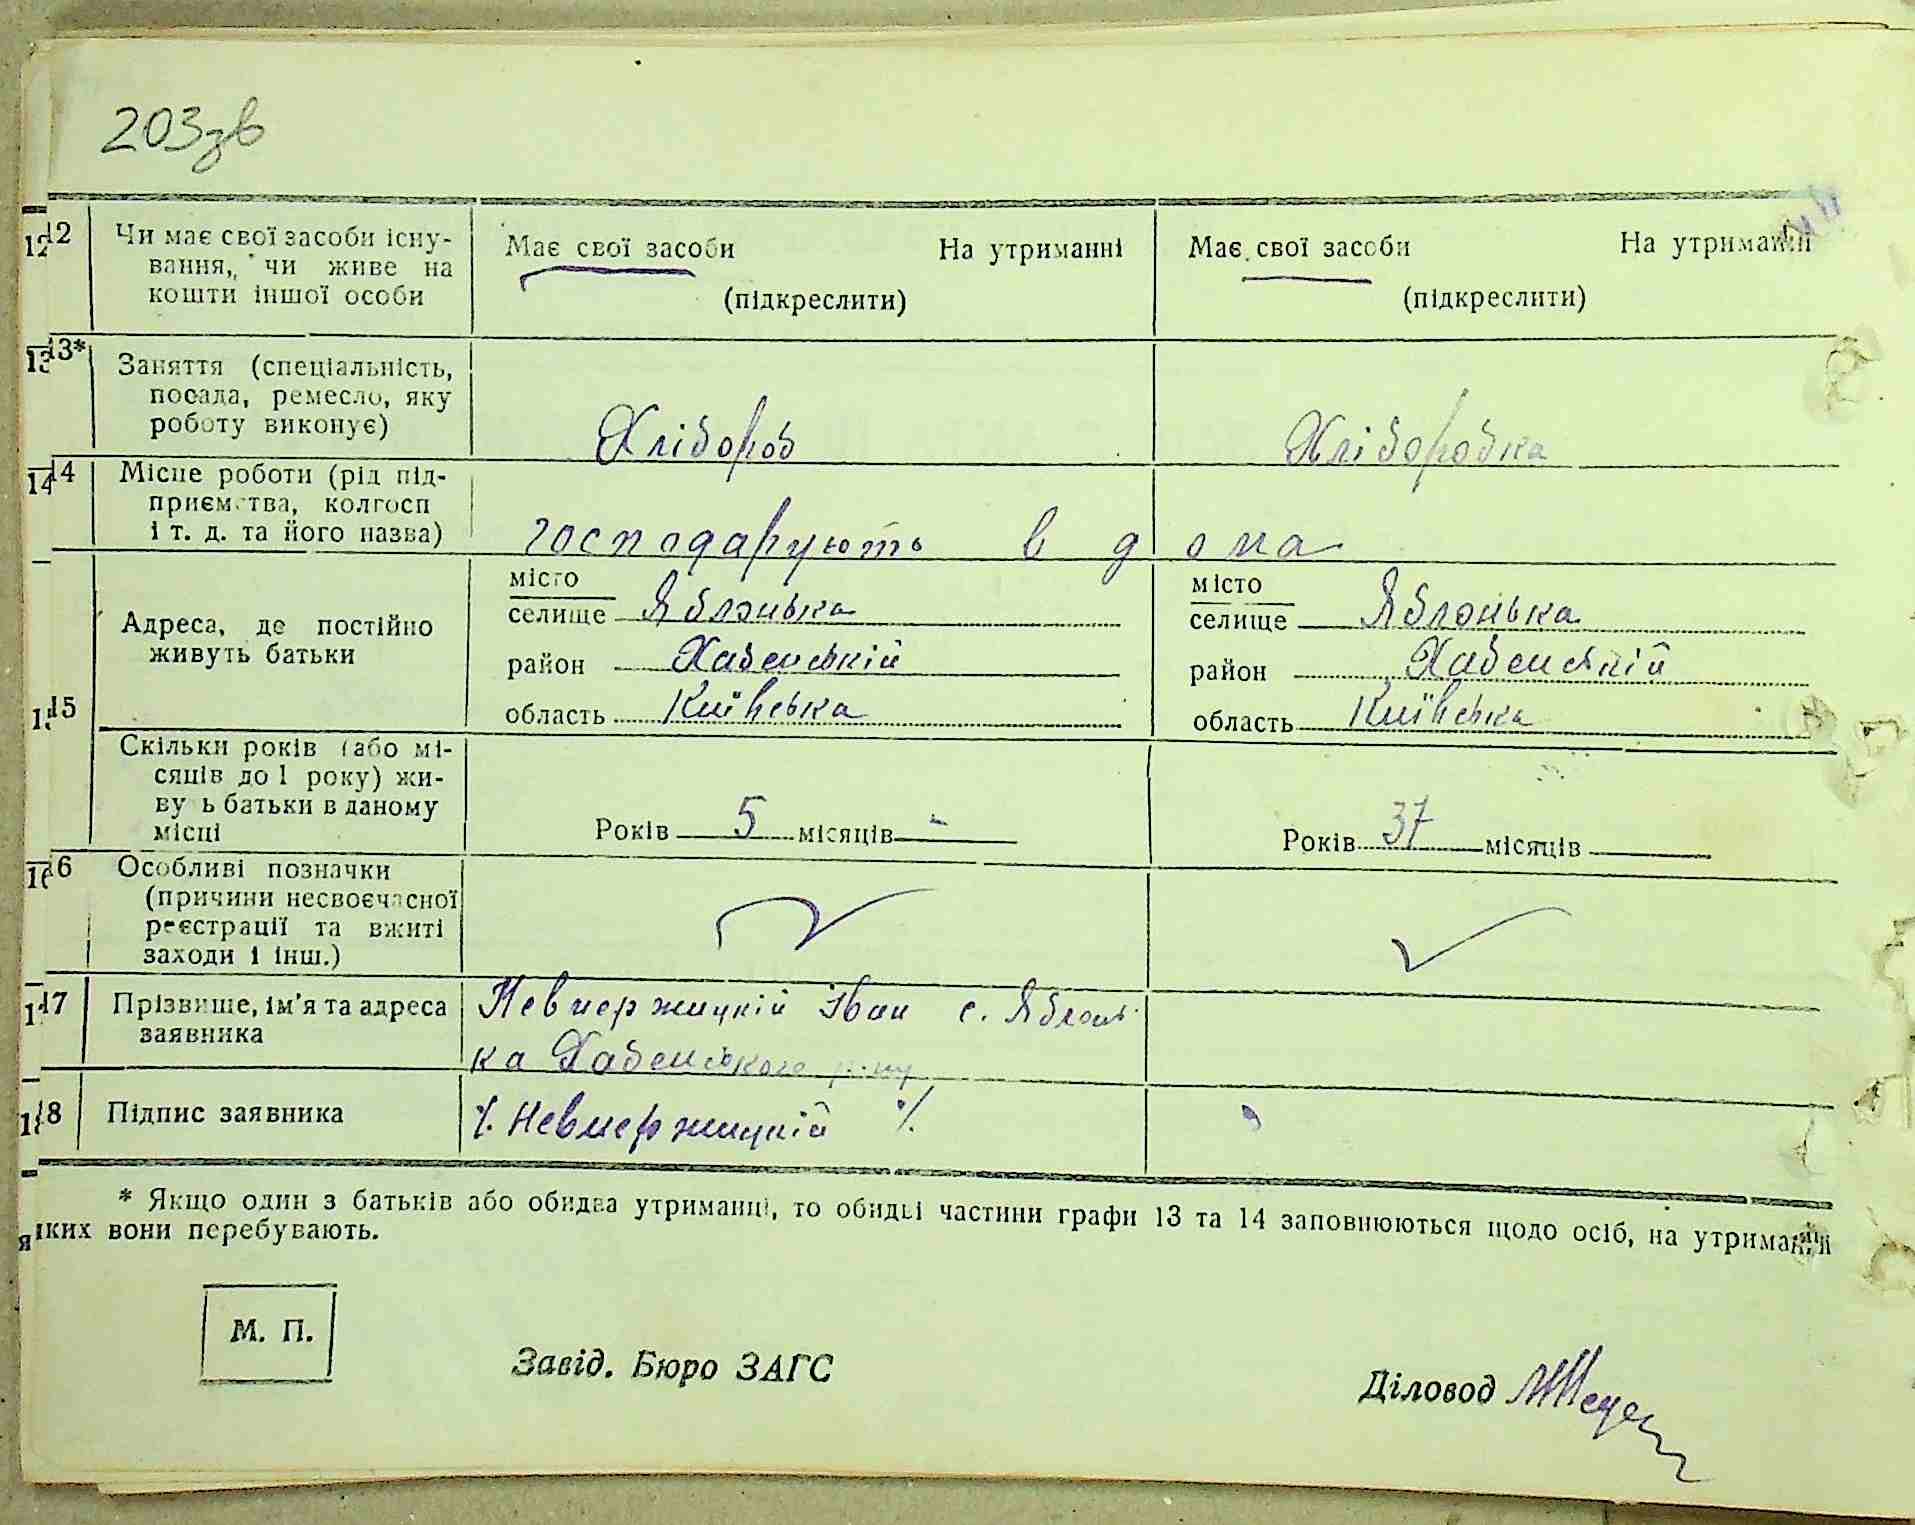 203зв
12 Чи має свої засоби існу-
вання, чи живе на
кошти іншої особи
Має свої засоби На утриманні
(підкреслити)
Має свої засоби На утриманні
(підкреслити)
13* Заняття (спеціальність,
посада, ремесло, яку
роботу виконує)
Хлібороб
Хліборобка
14 Місце роботи (рід під-
приємства, колгосп
і т. д. та його назва)
господарують в дома
15 Адреса, де постійно
живуть батьки
місто
селище Яблонька
район Хабенській
область Київська
місто
селище Яблонька
район Хабенській
область Київська
Скільки років (або мі-
сяців до 1 року) жи-
вуь батьки в даному
місці
Років 5 місяців -
Років 37 місяців
16 Особливі позначки
(причини несвоєчасної
реєстрації та вжиті
заходи і інш.)
17 Прізвище, ім'я та адреса
заявника
Невмержицкій Іван с. Яблонь
ка Хабенського р-ну
18 Підпис заявника
/. Невмержицкій ./.
* Якщо один з батьків або обидва утриманці, то обидві частини графи 13 та 14 заповнюються щодо осіб, на утриманні
яких вони перебувають.
М. П.
Завід. Бюро ЗАГС
Діловод